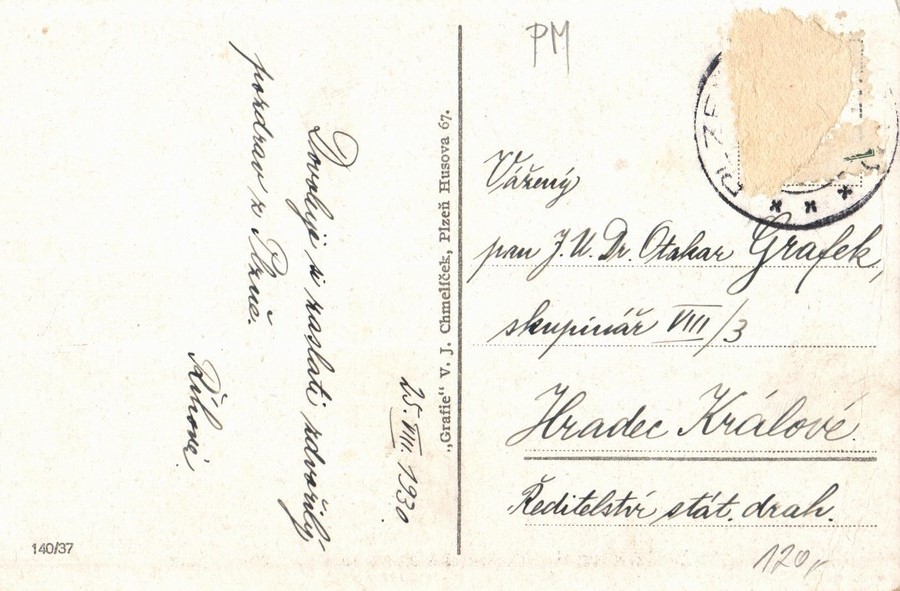 PM
PLZEŇ
25.VIII. 1930
Dovoluji si zaslati zdvořilý
pozdrav z Plzně.
Říhové
„Grafie“ V. J. Chmelíček, Plzeň Husova 67.
Vážený
pan J.U.Dr. Otakar Grafek,
skupinář VIII/3
Hradec Králové.
Ředitelství stát. drah.
140/37
120,-